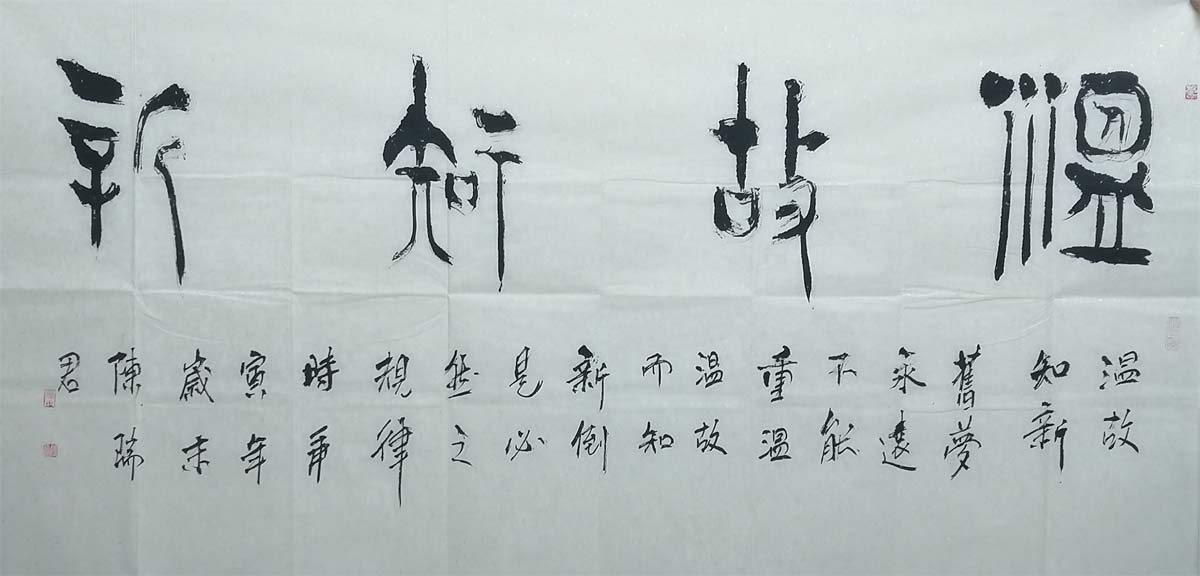 溫故知新
温故
知新
舊夢
永遠
不能
重温
温故
而知
新倒
是必
然之
規律
時
寅年
歲末
陳瑞
君